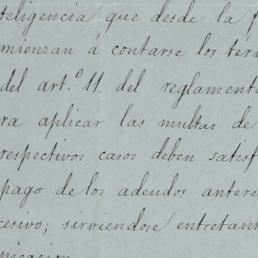 teligencia que desde la f
mienzan á contarse los ter
del art.º 11. del reglament
ra aplicar las multas de
respectivos casos deben satisf
pago de los adeudos anteri
cesivo; sirviendose entretan
nicacion